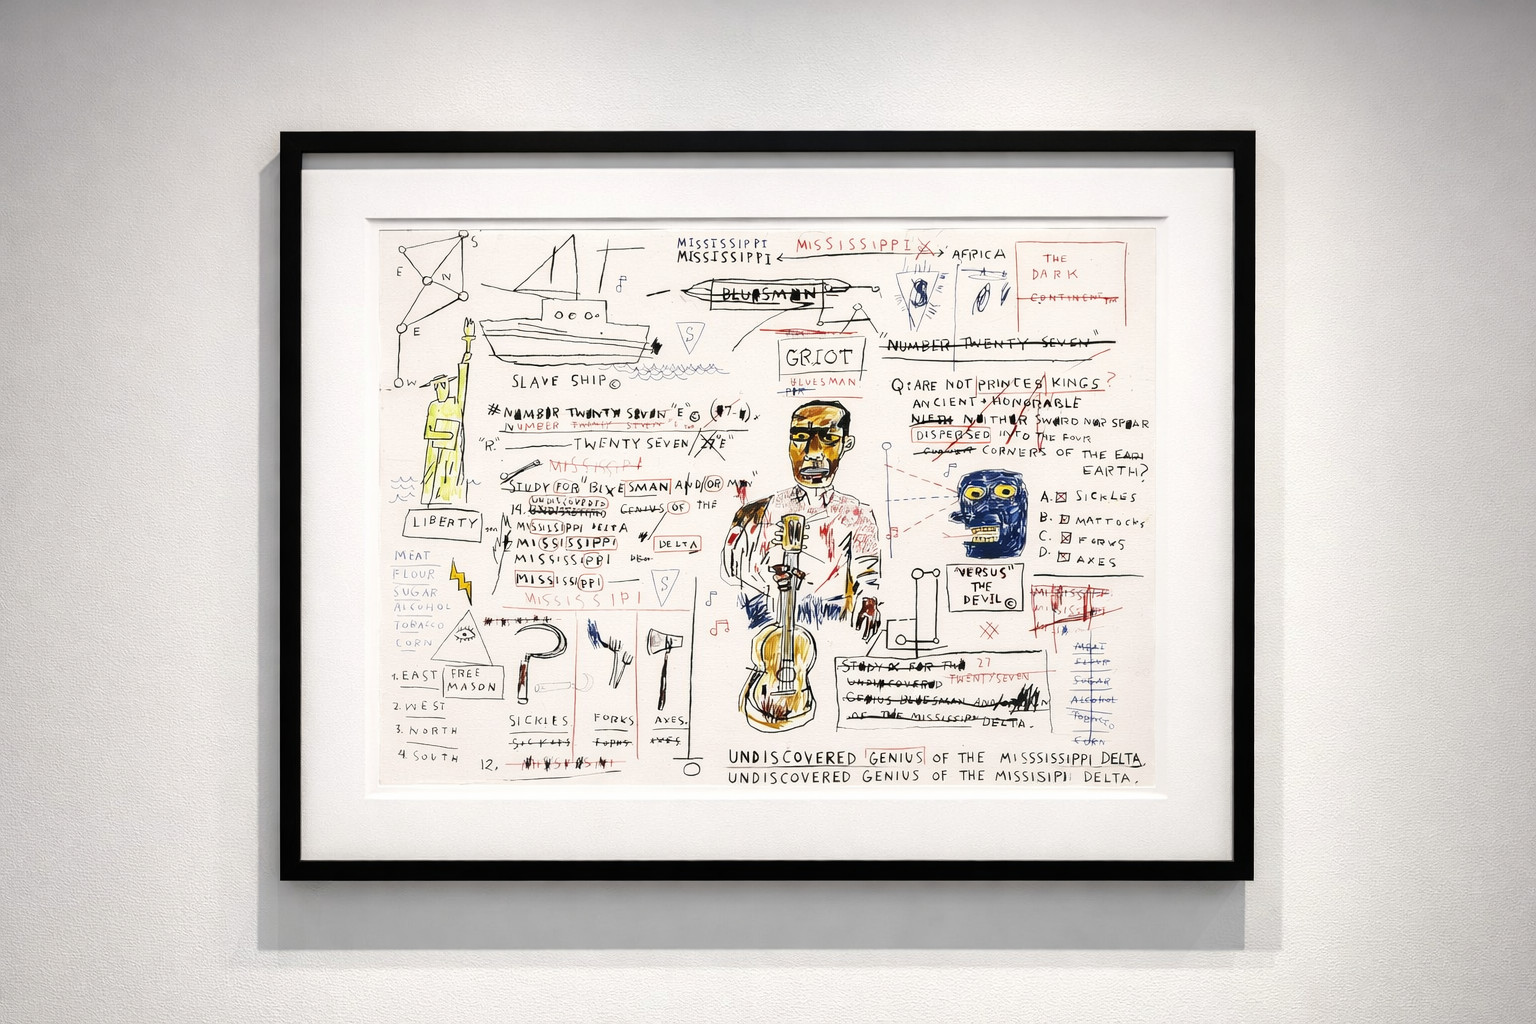 S
E
N
E
W
MISSISSIPPI
MISSISSIPPI
MISSISSIPPI
AFRICA
THE
DARK
CONTINENT TM
BLUESMAN
S
S
"NUMBER TWENTY SEVEN"
GRIOT
BLUESMAN
SLAVE SHIP ©
# NUMBER TWENTY SEVEN "E" ©
NUMBER TWENTY SEVEN "E"
"R." TWENTY SEVEN / 27 "E"
MISSISSIPI
STUDY FOR "BLUESMAN AND/OR
UNDISCOVERED
14. GENIUS OF THE
MISSISSIPPI DELTA
MISSISSIPPI DELTA
MISSISSIPPI
MISSISSIPPI
S
MISSISSIPI
Q: ARE NOT PRINCES KINGS?
ANCIENT + HONORABLE
NIETH NEITHER SWORD NOR SPEAR
DISPERSED INTO THE FOUR
CORNER CORNERS OF THE EARI
EARTH?
A. SICKLES
B. MATTOCKS
C. FORKS
D. AXES
"VERSUS"
THE
DEVIL ©
LIBERTY
MEAT
FLOUR
SUGAR
ALCOHOL
TOBACCO
CORN
FREE
MASON
1. EAST
2. WEST
3. NORTH
4. SOUTH
SICKLES
FORKS
AXES.
SICKLES
FORKS
AXES
12.
MISSISSIPPI
MISSISSIPPI
MEAT
FLOUR
SUGAR
ALCOHOL
TOBACCO
CORN
STUDY FOR THE 27
UNDISCOVERED TWENTYSEVEN
GENIUS BLUESMAN AND/OR
OF THE MISSISSIPPI DELTA.
UNDISCOVERED GENIUS OF THE MISSSISSIPPI DELTA.
UNDISCOVERED GENIUS OF THE MISSISIPI DELTA.